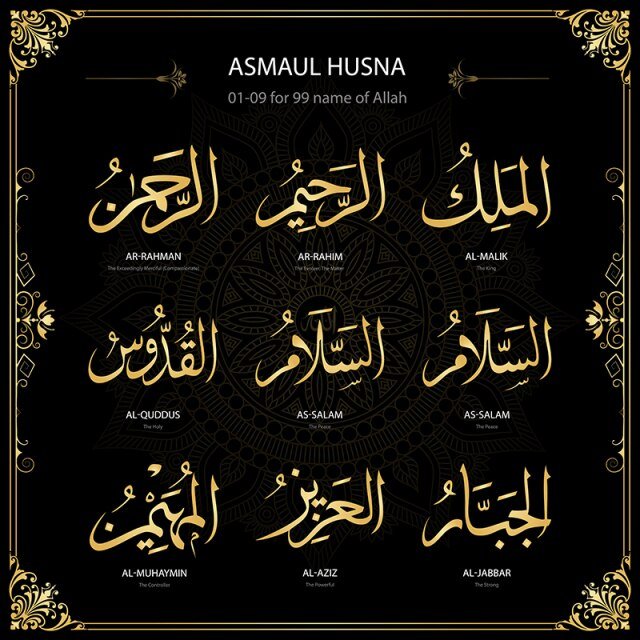 ASMAUL HUSNA
01-09 for 99 name of Allah
الرَّحْمَٰنُ الرَّحِيْمُ المَلِكُ
AR-RAHMAN AR-RAHIM AL-MALIK
The Exceedingly Merciful (Compassionate) The King
القُدُّوسُ السَّلَامُ السَّلَامُ
AL-QUDDUS AS-SALAM AS-SALAM
The Holy The Peace The Peace
المُهَيْمِنُ العَزِيزُ الجَبَّارُ
AL-MUHAYMIN AL-AZIZ AL-JABBAR
The Controller The Powerful The Strong